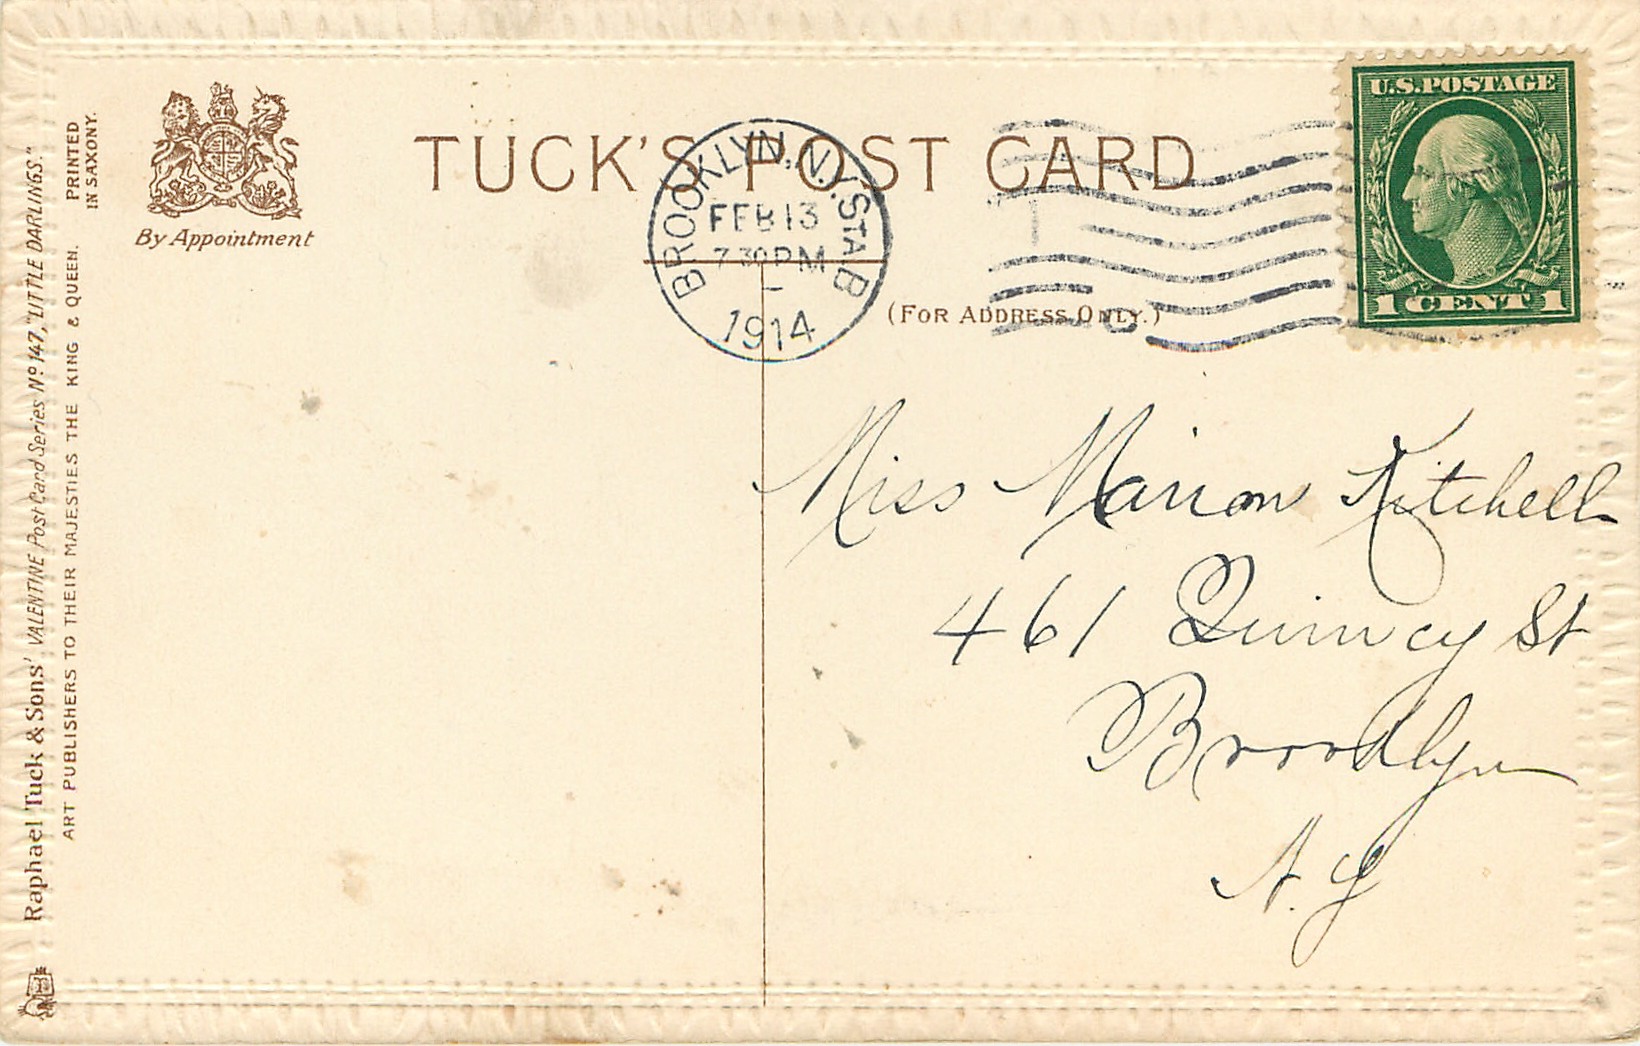 Raphael Tuck & Sons' VALENTINE Post Card Series No 147, "LITTLE DARLINGS."
ART PUBLISHERS TO THEIR MAJESTIES THE KING & QUEEN.
PRINTED
IN SAXONY.
By Appointment
TUCK'S POST CARD
BROOKLYN, N.Y. STA. B
FEB 13
7 30 PM
1914
U.S. POSTAGE
1 CENT 1
(FOR ADDRESS ONLY.)
Miss Marion Kitchell
461 Quincy St
Brooklyn
N.Y